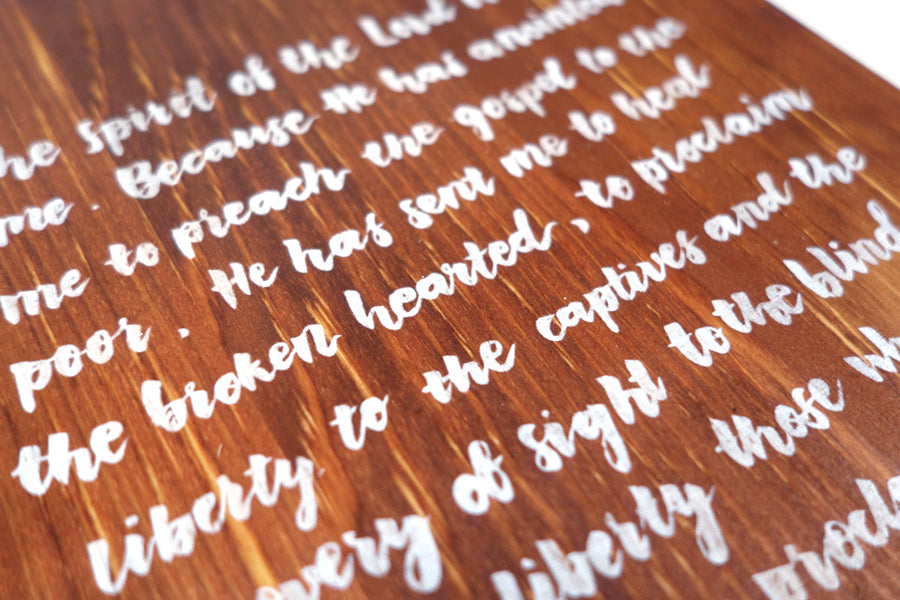 he Spirit of the Lord
me . Because He has anointed
me to preach the gospel to the
poor . He has sent me to heal
the broken hearted , to proclaim
liberty to the captives and the
overy of sight to the blind
liberty those wh
procla